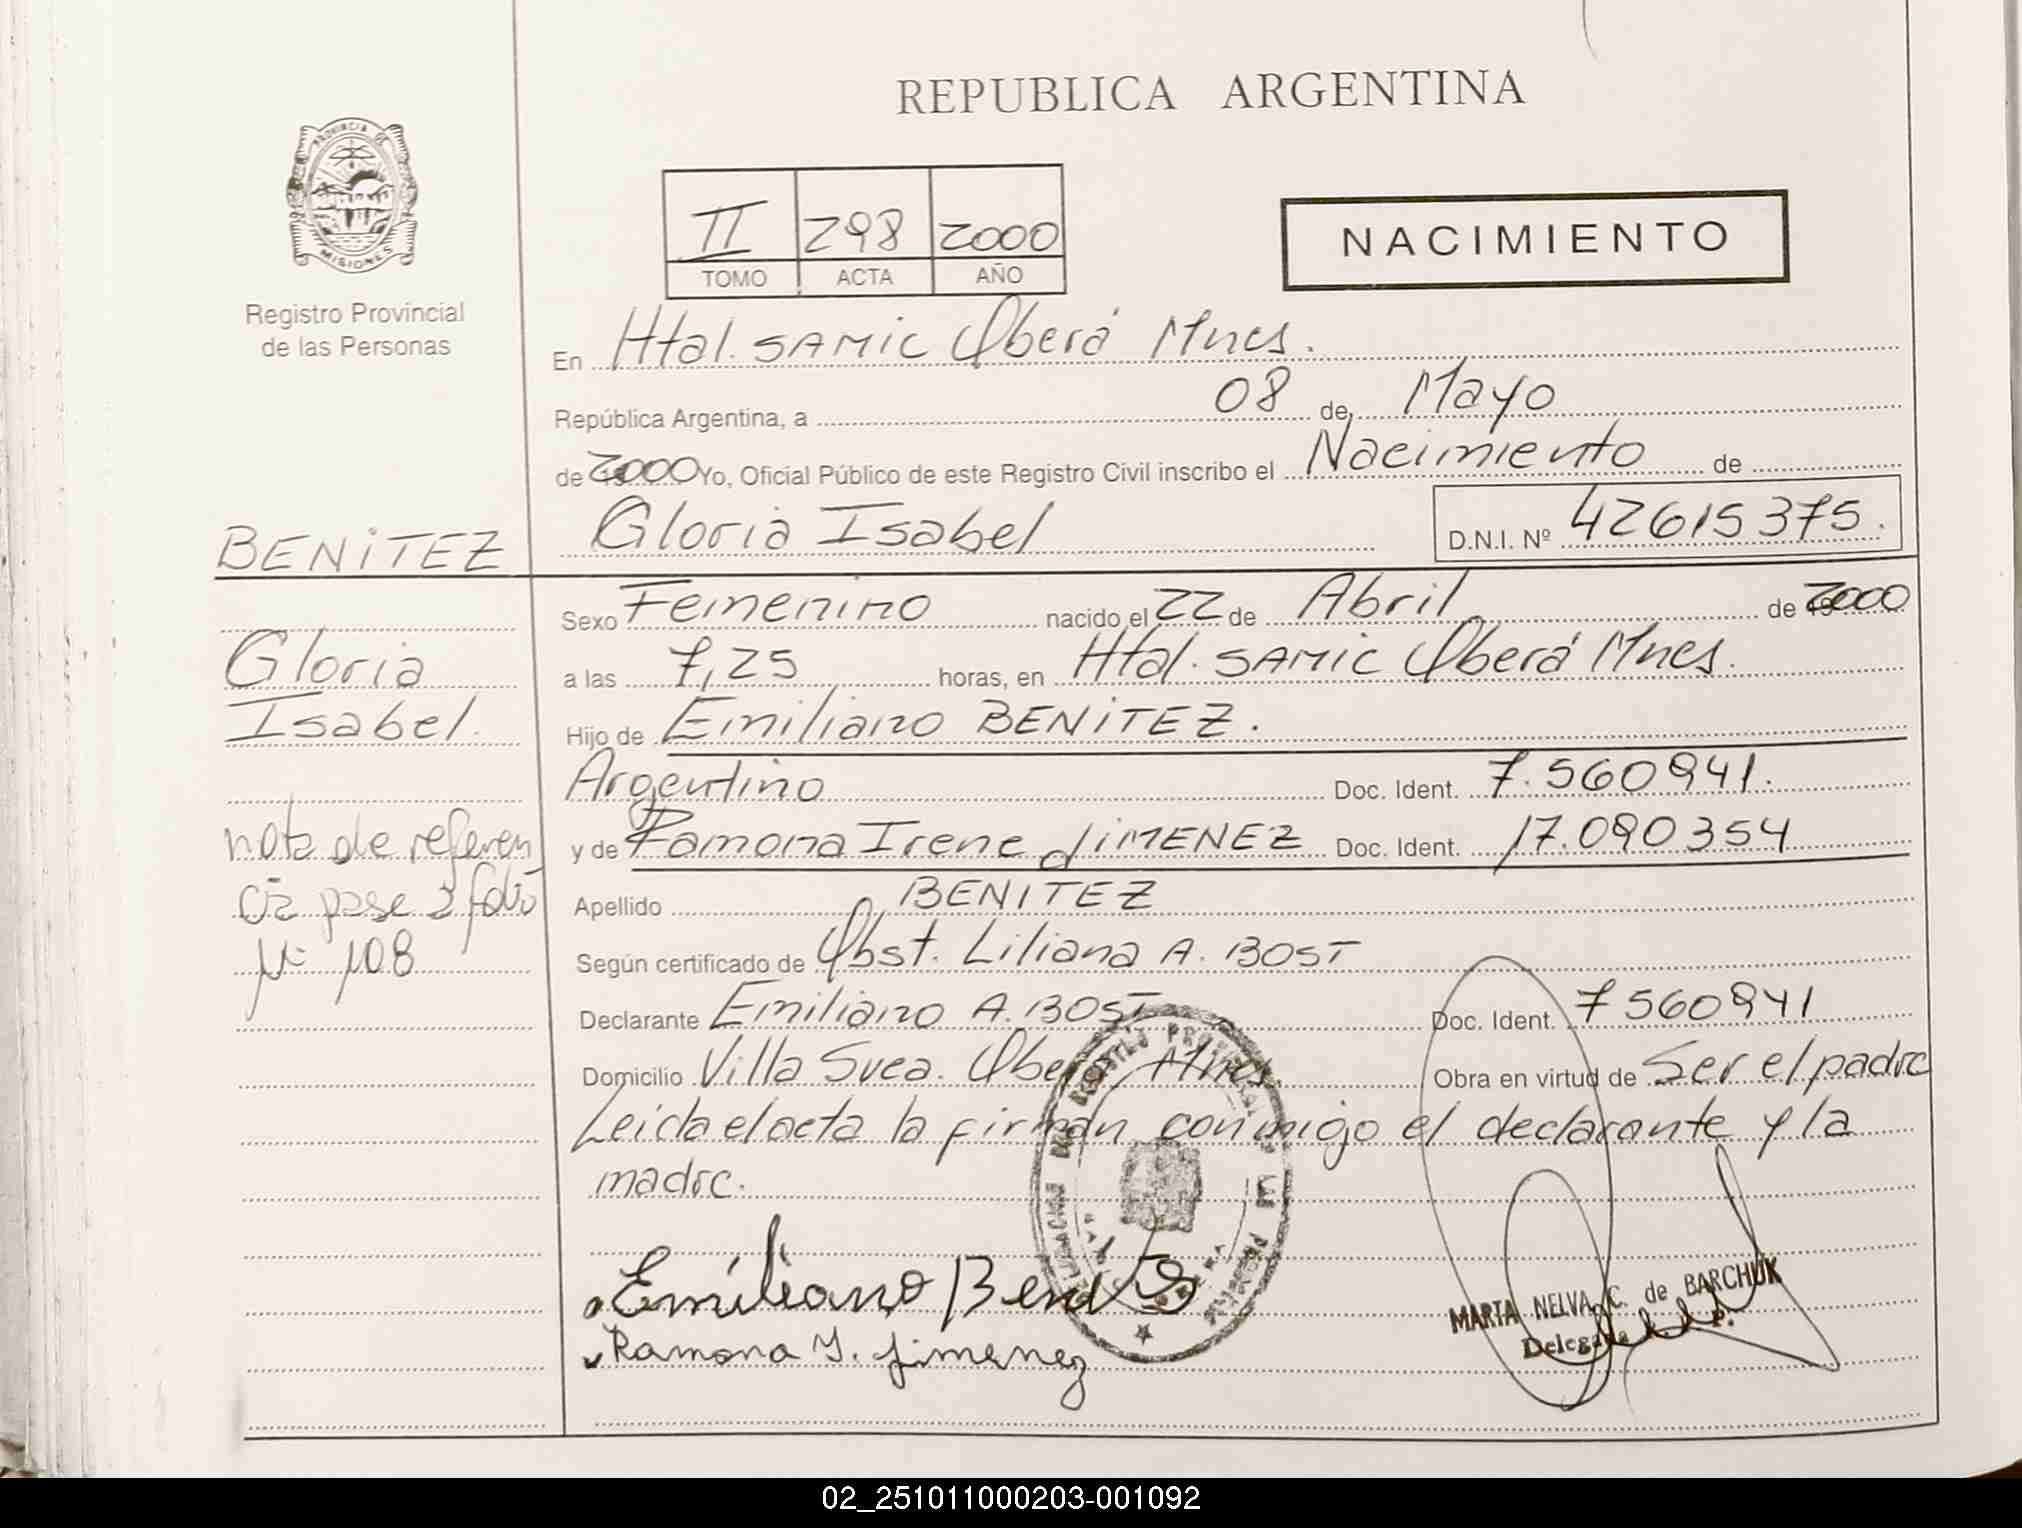 REPUBLICA ARGENTINA
PROVINCIA DE
MISIONES
Registro Provincial
de las Personas
II 298 2000
TOMO ACTA AÑO
NACIMIENTO
En Htal. SAMIC Oberá Mnes.
República Argentina, a 08 de Mayo
de 2000 Yo, Oficial Público de este Registro Civil inscribo el Nacimiento de
Gloria Isabel D.N.I. Nº 42615375.
BENITEZ
Gloria
Isabel.
nota de referen
cia pase a folio
Nº 108
Sexo Femenino nacido el 22 de Abril de 2000
a las 7,25 horas, en Htal. SAMIC Oberá Mnes.
Hijo de Emiliano BENITEZ.
Argentino Doc. Ident. 7.560941.
y de Ramona Irene JIMENEZ Doc. Ident. 17.090354
Apellido BENITEZ
Según certificado de Obst. Liliana A. BOST
Declarante Emiliano A. BOST Doc. Ident. 7560941
Domicilio Villa Svea. Oberá Mnes. Obra en virtud de Ser el padre
Leida el acta la firman conmigo el declarante y la
madre.
Emiliano Benites
Ramona I. Jimenez
MARTA NELVA C. de BARCHUK
Delegada
02_251011000203-001092